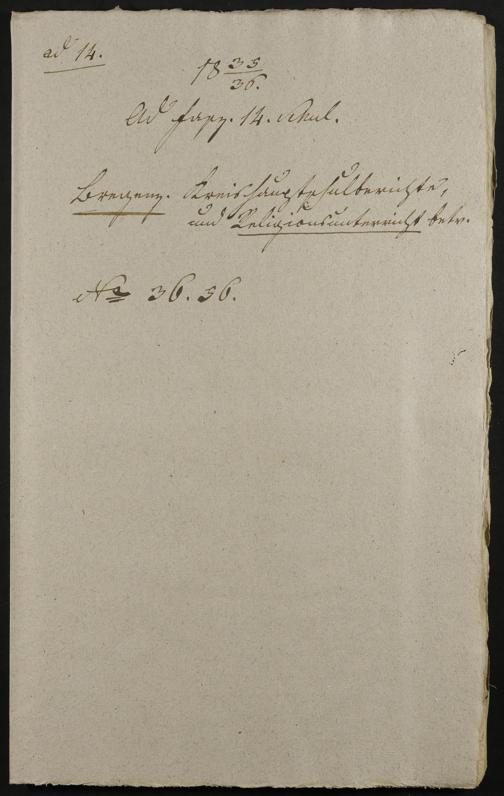 ad 14.
18 35/36.
Ad Fasz. 14. Schul.
Bregenz. Kreishauptschulberichte,
und Religionsunterricht betr.
No 36. 36.